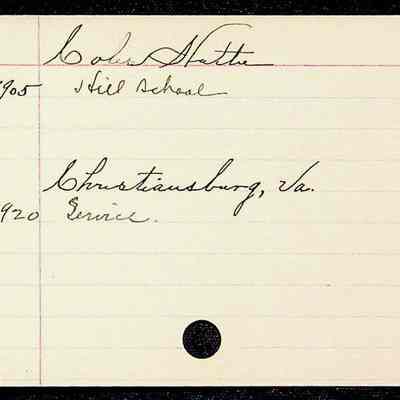 Coles Hattie
1905 Hill School
Christiansburg, Va.
1920 Service.